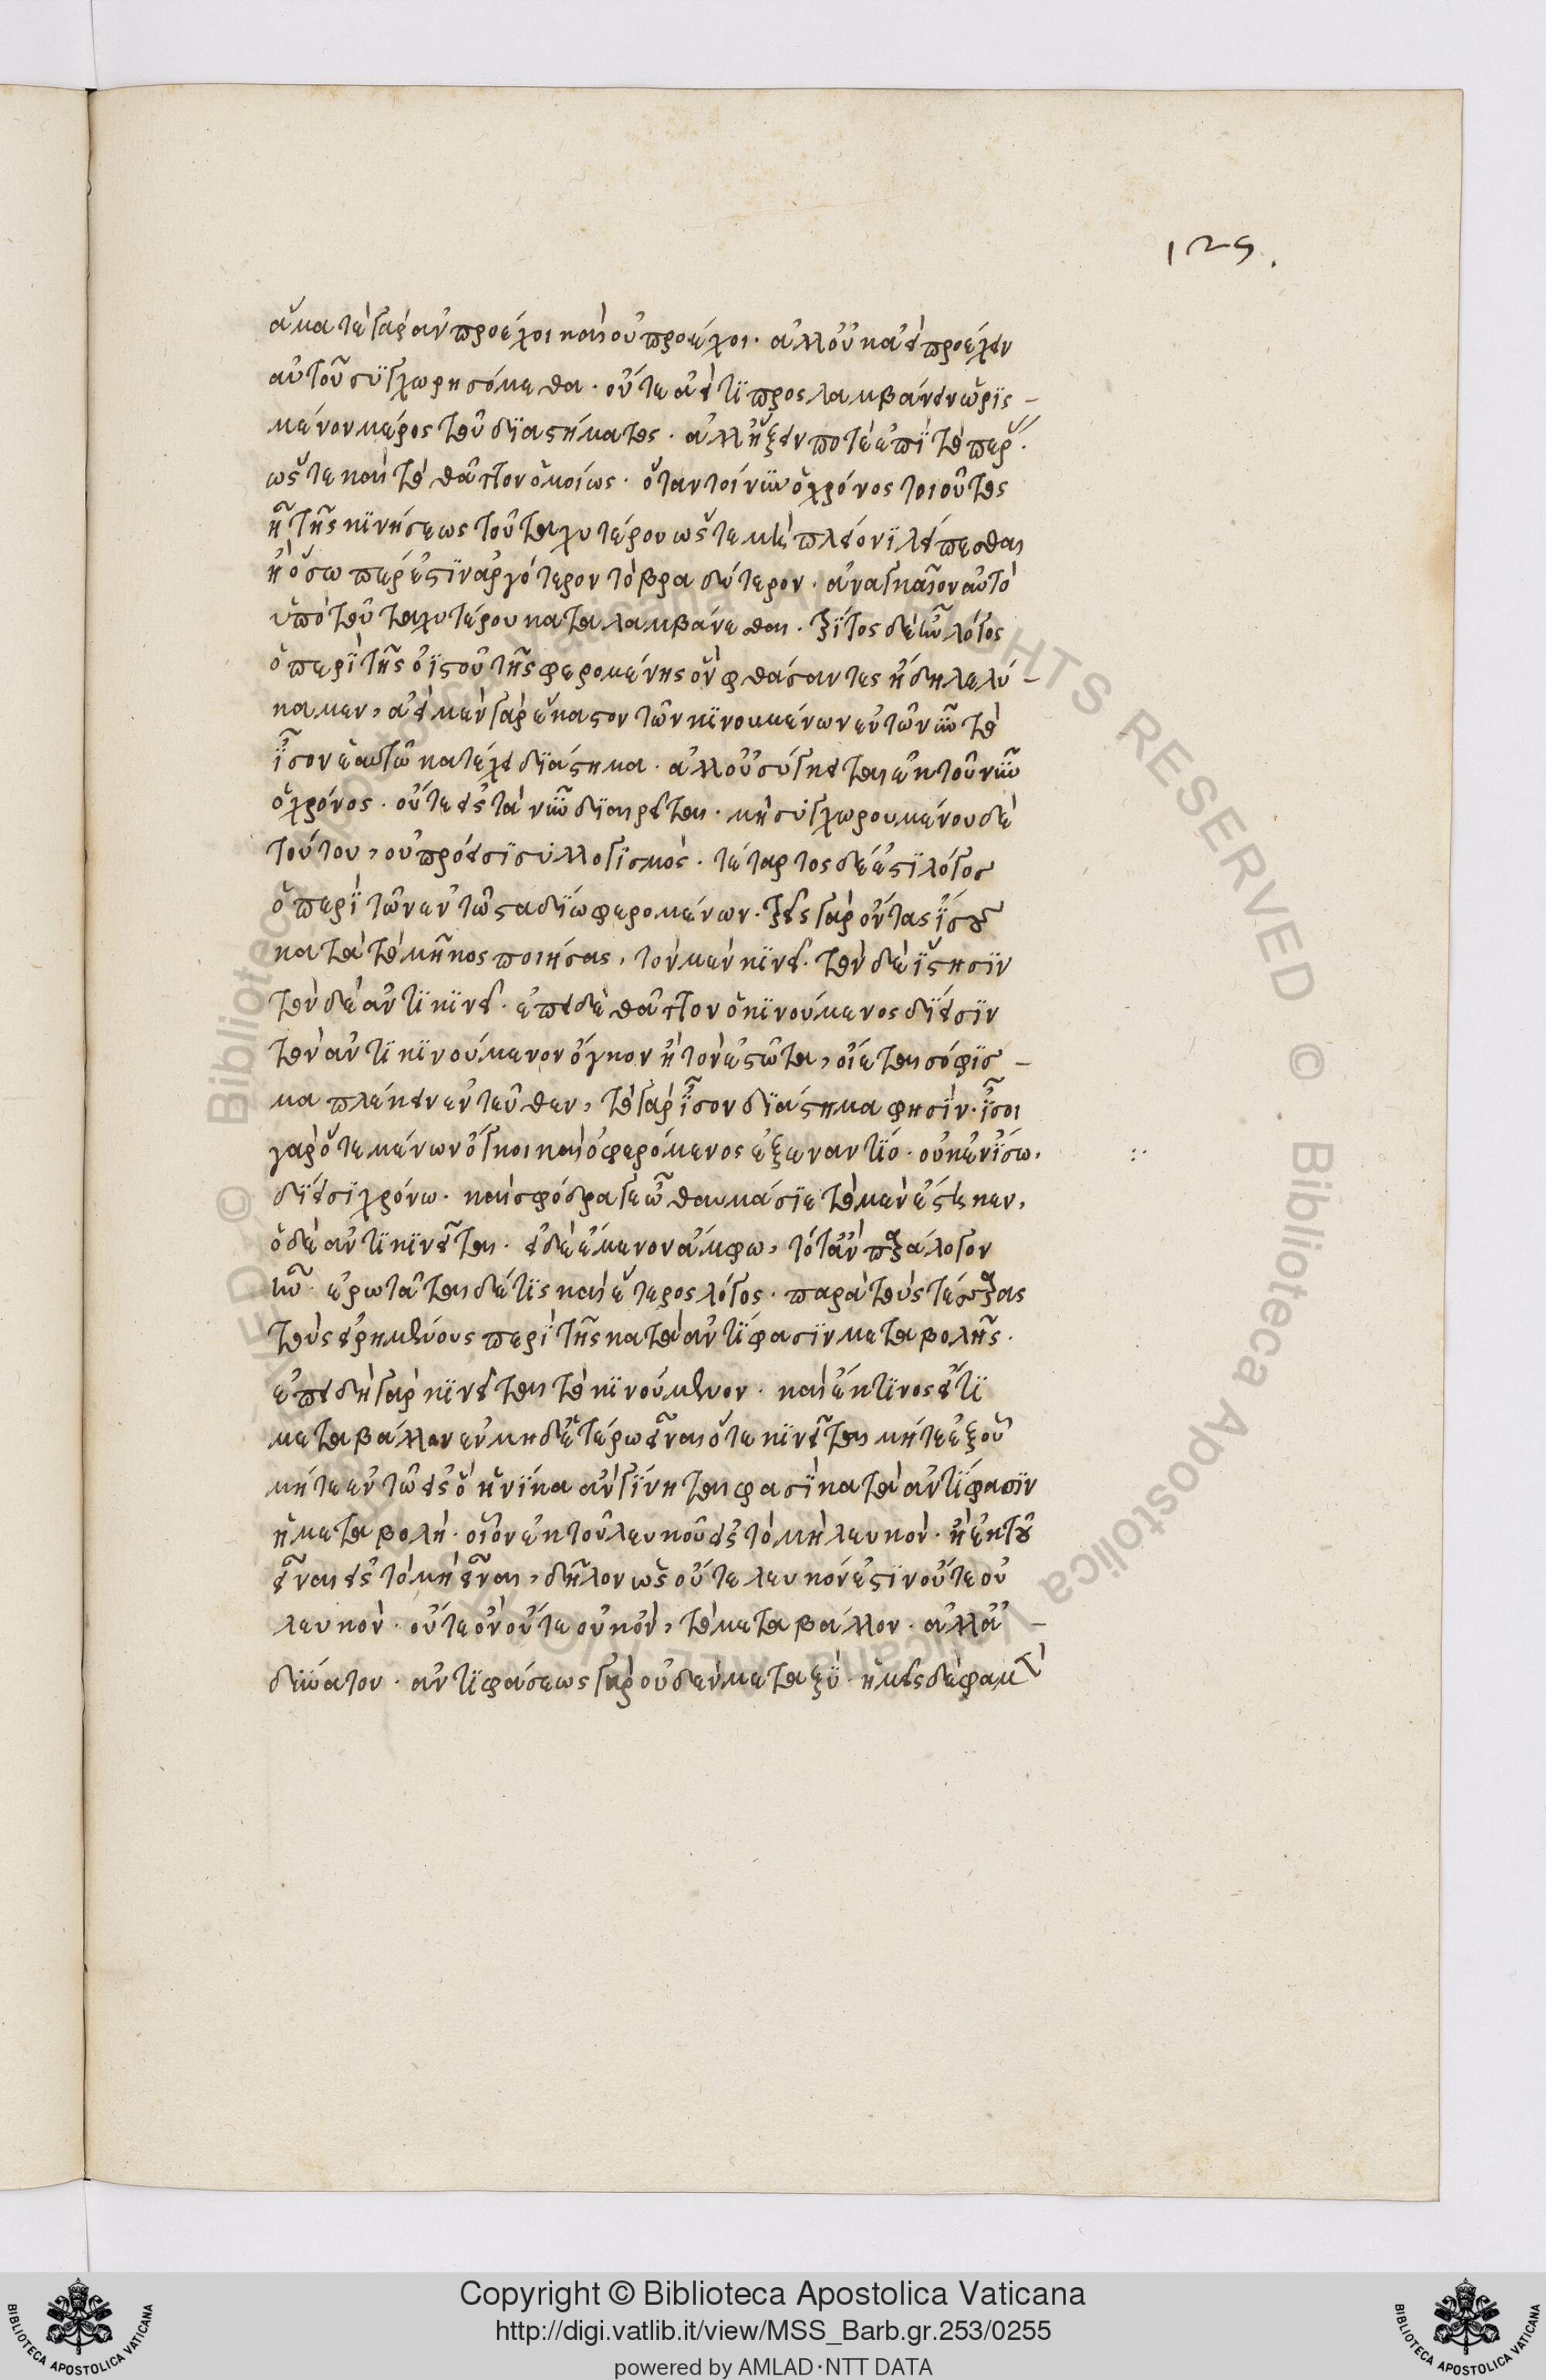 125.
ἅμα τὲ γὰρ ἂν προέχοι καὶ οὐ προέχοι. ἀλλ' οὐκ ἀεὶ προέχειν
αὐτοῦ συγχωρησόμεθα. οὔτε ἀεί τι προσλαμβάνειν ὡρισ-
μένον μέρος τοῦ διαστήματος. ἀλλ' ἥξειν ποτὲ ἐπὶ τὸ περ
ὥστε καὶ τὸ θᾶττον ὁμοίως. ὅταν τοίνυν ὁ χρόνος τοιοῦτος
ἦ τῆς κινήσεως τοῦ ταχυτέρου ὥστε μὴ πλέονι λείπεσθαι
ἢ ὅσω περ ἐστὶν ἀργότερον τὸ βραδύτερον. ἀναγκαῖον αὐτὸ
ὑπὸ τοῦ ταχυτέρου καταλαμβάνεσθαι. τρίτος δὲ ἦν λόγος
ὁ περὶ τῆς ὀϊστοῦ τῆς φερομένης ὃν φθάσαντες ἤδη λελύ-
καμεν, ἀεὶ μὲν γὰρ ἕκαστον τῶν κινουμένων ἐν τῶ νῦν τὸ
ἴσον ἑαυτῶ κατέχει διάστημα. ἀλλ' οὐ σύγκειται ἐκ τοῦ νῦν
ὁ χρόνος. οὔτε εἰς τὰ νῦν διαιρεῖται. μὴ συγχωρουμένου δὲ
τούτου, οὐ πρόεισι συλλογισμός. τέταρτος δέ ἐστι λόγος
ὁ περὶ τῶν ἐν τῶ σταδίω φερομένων. τρεῖς γὰρ ὄντας ἴσους
κατὰ τὸ μῆκος ποιήσας, τὸν μὲν κινεῖ. τὸν δὲ ἵστησιν
τὸν δὲ ἀντικινεῖ. ἐπεὶ δὲ θᾶττον ὁ κινούμενος δίεισιν
τὸν ἀντικινούμενον ὄγκον ἢ τὸν ἑστῶτα, οἴεται σόφισ-
μα πλέκειν ἐντεῦθεν, τὸ γὰρ ἴσον διάστημα φησὶν. ἴσοι
γὰρ ὅτε μένων ὄγκοι καὶ ὁ φερόμενος ἐξεναντίο. οὐκ ἐν ἴσω.
δίεισι χρόνω. καὶ σφόδρα γε ὦ θαυμάσιε τὸ μὲν ἕστηκεν,
ὁ δὲ ἀντικινεῖται. εἰ δὲ ἔμενον ἄμφω, τότ' ἂν παράλογον
ἦν. ἐρωτᾶται δέ τις καὶ ἕτερος λόγος. παρὰ τοὺς τέσσαρας
τοὺς εἰρημένους περὶ τῆς κατὰ ἀντίφασιν μεταβολῆς.
ἐπειδὴ γὰρ κινεῖται τὸ κινούμενον. καὶ ἔκ τινος εἴς τι
μεταβάλλον ἐν μηδετέρω εἶναι ὅτε κινεῖται μήτε ἐξ οὗ
μήτε ἐν τῶ εἰς ὃ ἡνίκα ἂν γίνηται φασὶ κατὰ ἀντίφασιν
ἡ μεταβολή. οἷον ἐκ τοῦ λευκοῦ εἰς τὸ μὴ λευκόν. ἢ ἐκ τοῦ
εἶναι εἰς τὸ μὴ εἶναι, δῆλον ὡς οὔτε λευκόν ἐστιν οὔτε οὐ
λευκόν. οὔτε ὂν οὔτε οὐκ ὂν, τὸ μεταβάλλον. ἀλλ' ἀ-
δύνατον. ἀντιφάσεως γὰρ οὐδὲν μεταξύ. ἡμεῖς δέ φαμεν
Copyright © Biblioteca Apostolica Vaticana
http://digi.vatlib.it/view/MSS_Barb.gr.253/0255
powered by AMLAD·NTT DATA